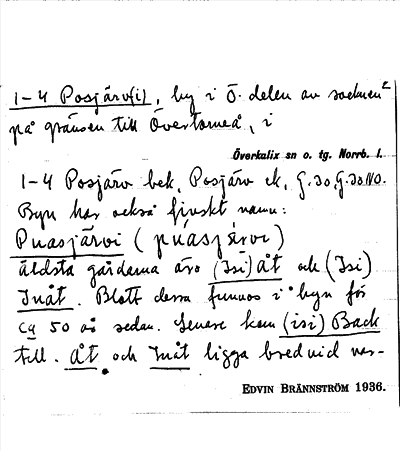 1-4 Posjärv(i), by i Ö. delen av socknen
på gränsen till Övertorneå, i
Överkalix sn o. tg. Norrb. l.
1-4 Posjärv bek, Posjärv ek, G.30, G.30 NO.
Byn har också finskt namn:
Puasjärvi (púasjärvi)
äldsta gårdarna äro (Isi) Åt och (Isi)
Inåt. Blott dessa funnos i byn för
ca 50 år sedan. Senere kom (isi) Back
till. Åt och Inåt ligga bredvid var-
EDVIN BRÄNNSTRÖM 1936.